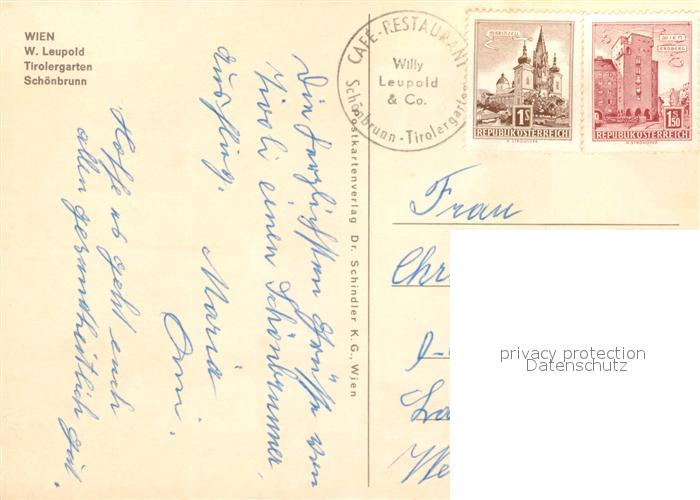 WIEN
W. Leupold
Tirolergarten
Schönbrunn
CAFÉ-RESTAURANT
Willy
Leupold
& Co.
Schönbrunn-Tirolergarten
MARIAZELL
1S
REPUBLIK ÖSTERREICH
WIEN
ERDBERG
1.50
REPUBLIK ÖSTERREICH
Die herzlichsten Grüße von
Tivoli einen Schönbrunner
Ausflug.
Maria
Omi.
Hoffe es geht euch
allen gesundheitlich gut.
Postkartenverlag Dr. Schindler K.G., Wien
Frau
Chr
privacy protection
Datenschutz